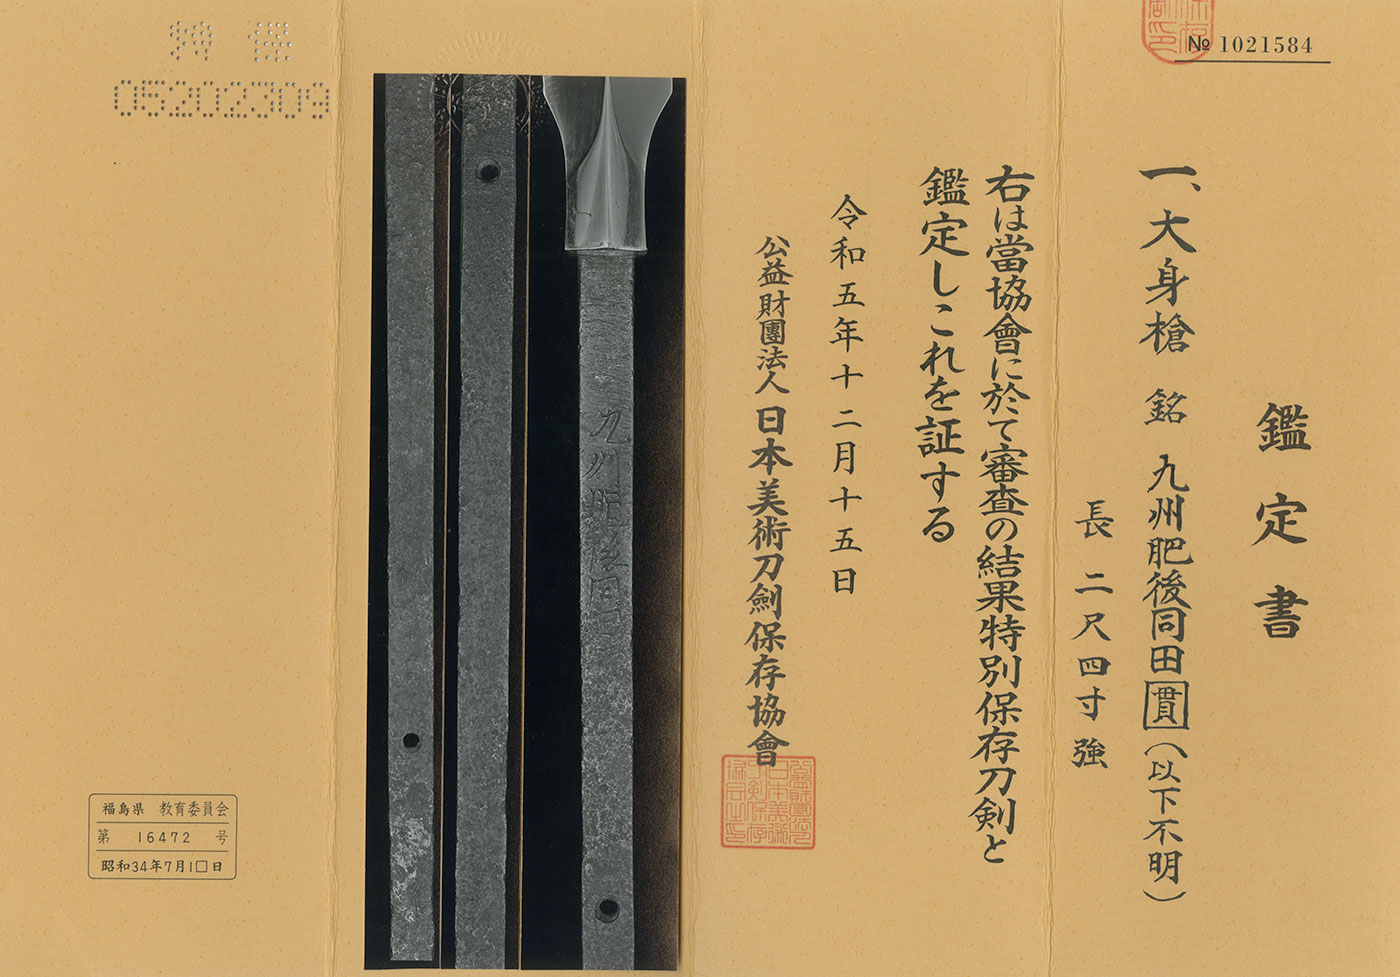 № 1021584
鑑定書
一、大身槍 銘 九州肥後同田貫(以下不明)
長 二尺四寸強
右は當協會に於て審査の結果特別保存刀剣と
鑑定しこれを証する
令和五年十二月十五日
公益財團法人 日本美術刀劍保存協會
九州肥後同田
05202309
福島県 教育委員会
第 16472 号
昭和34年7月1□日